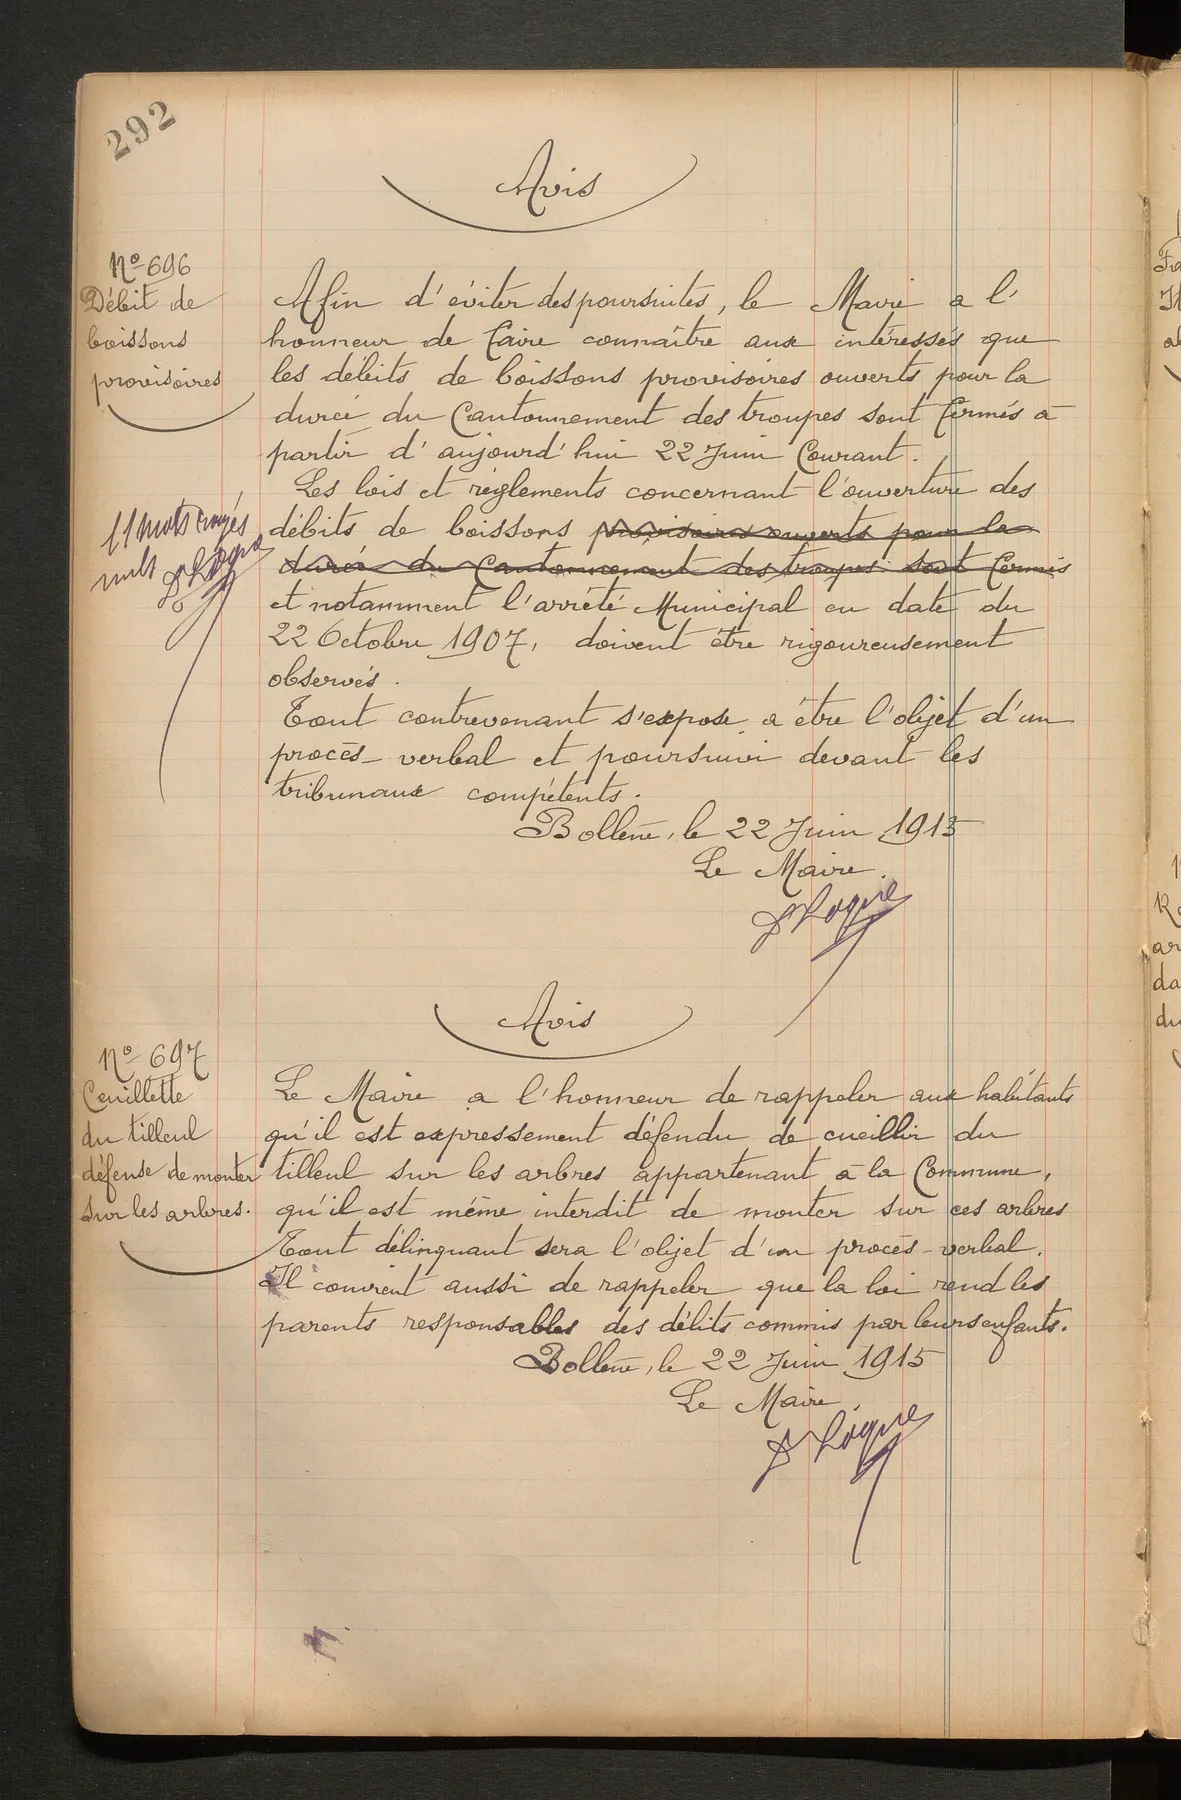 292
Avis
No 696
Débit de
boissons
provisoires
Afin d'éviter des poursuites, le Maire a l'
honneur de faire connaître aux intéressés que
les débits de boissons provisoires ouverts pour la
durée du Cantonnement des troupes sont fermés à
partir d'aujourd'hui 22 Juin Courant.
Les lois et réglements concernant l'ouverture des
débits de boissons provisoires ouverts pour la
durée du Cantonnement des troupes sont fermés
et notamment l'arrêté Municipal en date du
22 Octobre 1907, doivent être rigoureusement
observés.
Tout contrevenant s'expose a être l'objet d'un
procès-verbal et poursuivi devant les
tribunaux compétents.
11 mots rayés
nuls
Bollène, le 22 Juin 1915
Le Maire.
Avis
No 697
Ceuillette
du tilleul
défense de monter
sur les arbres.
Le Maire a l'honneur de rappeler aux habitants
qu'il est expressement défendu de cueillir du
tilleul sur les arbres appartenant à la Commune,
qu'il est même interdit de monter sur ces arbres
Tout délinquant sera l'objet d'un procès-verbal.
Il convient aussi de rappeler que la loi rend les
parents responsables des délits commis par leurs enfants.
Bollène, le 22 Juin 1915
Le Maire.